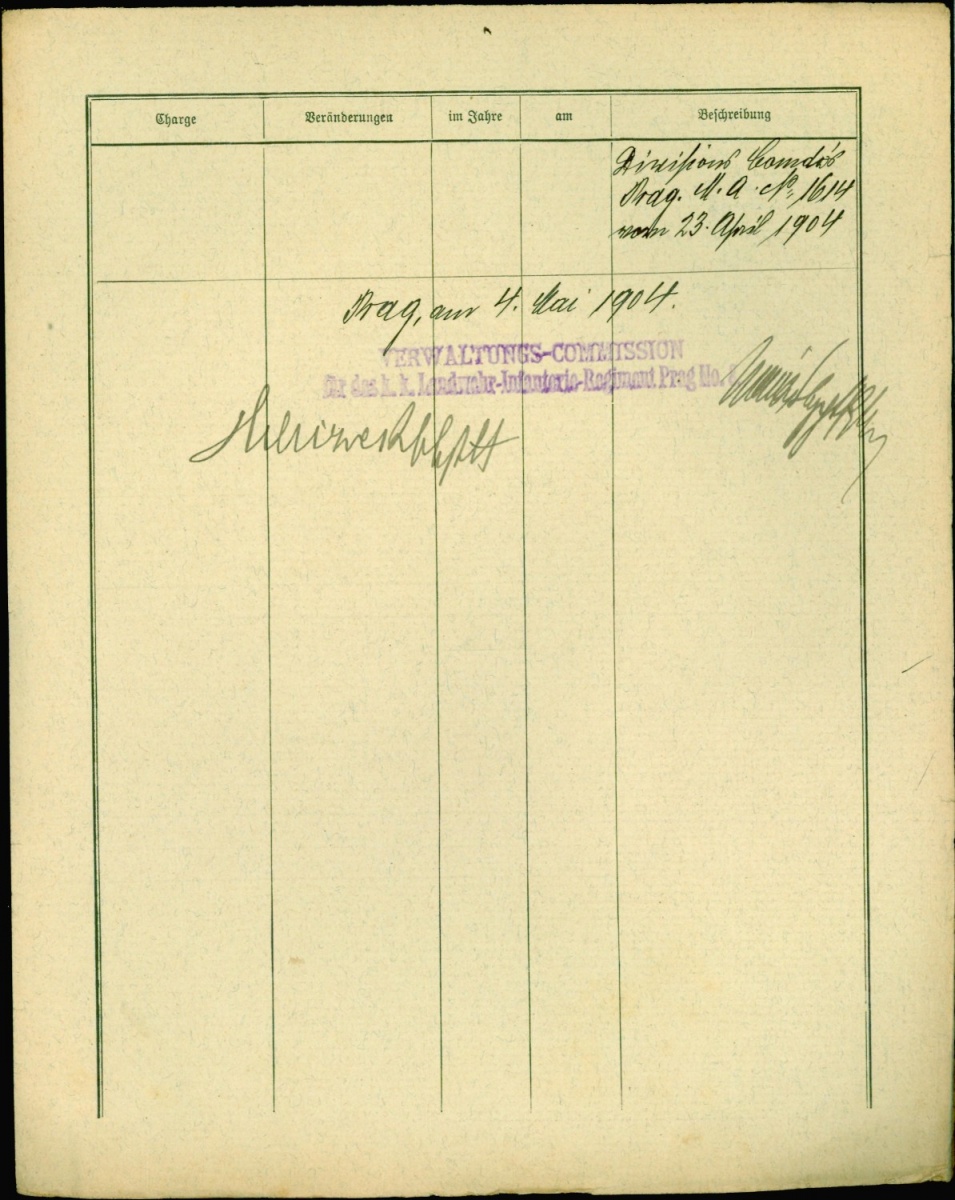 Charge Veränderungen im Jahre am Beschreibung
Divisions Comdo's
Prag. M. A. No 1614
vom 23. April 1904
Prag, am 4. Mai 1904.
VERWALTUNGS-COMMISSION
für das k. k. Landwehr-Infanterie-Regiment Prag No. 8